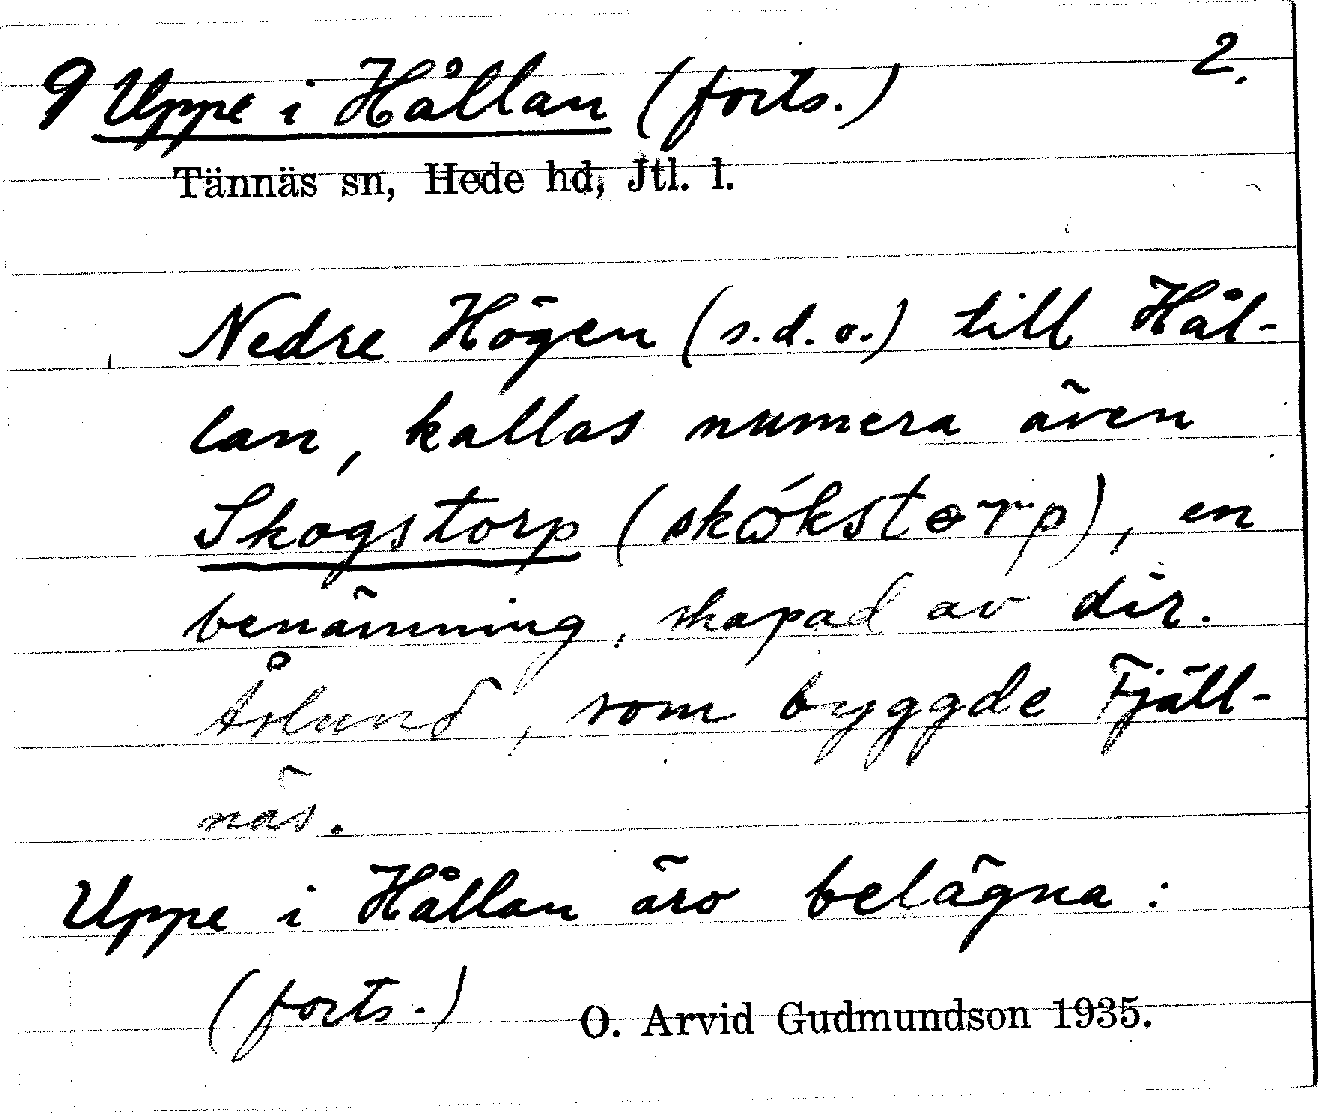 9 Uppe i Hållan (forts.) 2.
Tännäs sn, Hede hd, Jtl. l.
Nedre Högen (s.d.o.) till Hål-
lan, kallas numera även
Skogstorp (skókstorp), en
benämning, skapad av dir.
Åslund, som byggde Fjäll-
näs.
Uppe i Hållan äro belägna:
(forts.) O. Arvid Gudmundson 1935.